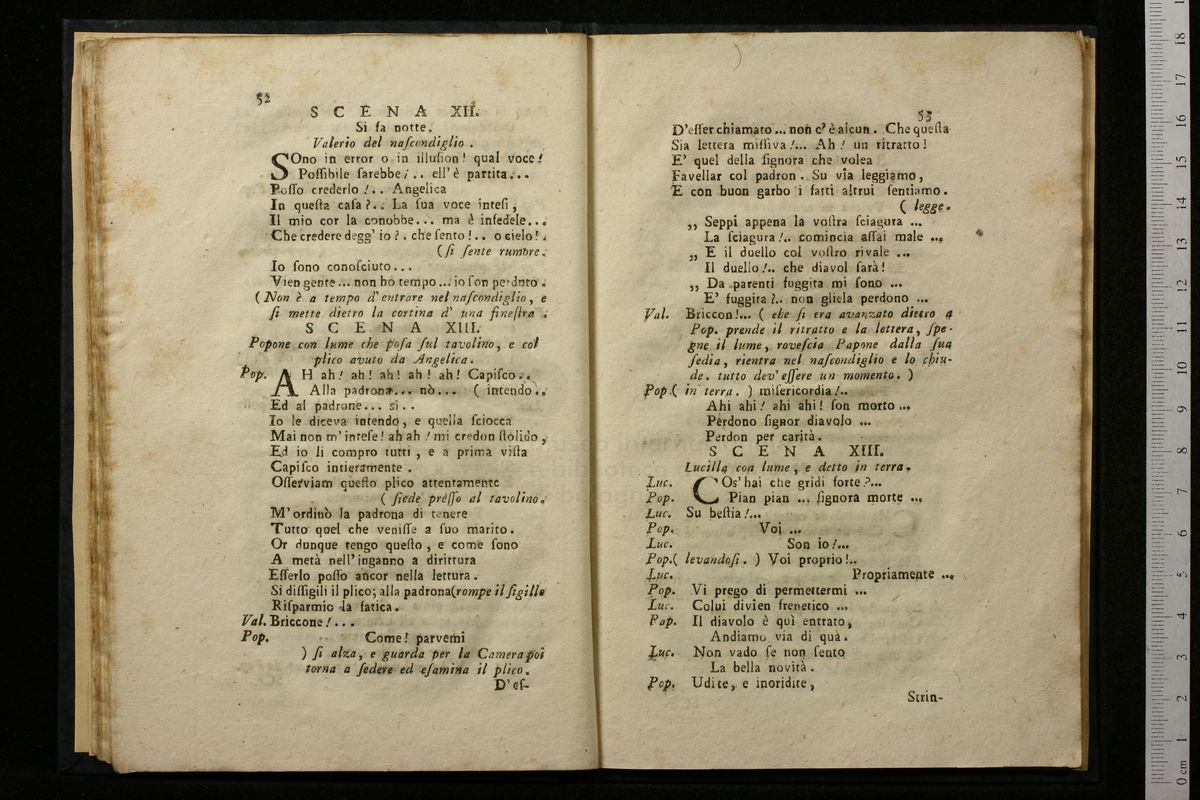 52
SCENA XII.
Si fa notte.
Valerio del naſcondiglio.
SOno in error o in illuſion! qual voce!
Poſſibile ſarebbe!.. ell'è partita...
Poſſo crederlo!.. Angelica
In queſta caſa?.. La ſua voce inteſi,
Il mio cor la conobbe... ma è infedele...
Che credere degg' io?. che ſento!.. o cielo!.
(ſi ſente rumore.
Io ſono conoſciuto...
Vien gente... non hò tempo... io ſon perduto.
(Non è a tempo d'entrare nel naſcondiglio, e
ſi mette dietro la cortina d'una fineſtra.
SCENA XIII.
Popone con lume che poſa ſul tavolino, e col
plico avuto da Angelica.
Pop. AH ah! ah! ah! ah! ah! Capiſco..
Alla padrona... nò... (intendo..
Ed al padrone... sì..
Io le diceva intendo, e quella ſciocca
Mai non m'inteſe! ah ah! mi credon ſtolido,
Ed io li compro tutti, e a prima viſta
Capiſco intieramente.
Oſſerviam queſto plico attentamente
(ſiede preſſo al tavolino.
M'ordinò la padrona di tenere
Tutto quel che veniſſe a ſuo marito.
Or dunque tengo queſto, e come ſono
A metà nell'inganno a dirittura
Eſſerlo poſſo ancor nella lettura.
Si diſſigili il plico; alla padrona(rompe il ſigillo
Riſparmio la fatica.
Val. Briccone!...
Pop. Come! parvemi
) ſi alza, e guarda per la Camera poi
torna a ſedere ed eſamina il plico.
D'eſ-
53
D'eſſer chiamato... non c'è alcun. Che queſta
Sia lettera miſſiva!... Ah! un ritratto!
E' quel della ſignora che volea
Favellar col padron. Su via leggiamo,
E con buon garbo i fatti altrui ſentiamo.
(legge.
,, Seppi appena la voſtra ſciagura ...
La ſciagura!.. comincia aſſai male ...
,, E il duello col voſtro rivale ...
Il duello!.. che diavol ſarà!
,, Da parenti fuggita mi ſono ...
E' fuggita?.. non gliela perdono ...
Val. Briccon!... (che ſi era avanzato dietro a
Pop. prende il ritratto e la lettera, ſpe-
gne il lume, roveſcia Papone dalla ſua
ſedia, rientra nel naſcondiglio e lo chiu-
de. tutto dev'eſſere un momento.)
Pop.(in terra.) miſericordia!..
Ahi ahi! ahi ahi! ſon morto ...
Perdono ſignor diavolo ...
Perdon per carità.
SCENA XIII.
Lucilla con lume, e detto in terra.
Luc. COs'hai che gridi forte?...
Pop. Pian pian ... ſignora morte ...
Luc. Su beſtia!...
Pop. Voi ...
Luc. Son io!...
Pop.(levandoſi.) Voi proprio!..
Luc. Propriamente ...
Pop. Vi prego di permettermi ...
Luc. Colui divien frenetico ...
Pop. Il diavolo è quì entrato,
Andiamo via di quà.
Luc. Non vado ſe non ſento
La bella novità.
Pop. Udite, e inoridite,
Strin-
0 cm 1 2 3 4 5 6 7 8 9 10 11 12 13 14 15 16 17 18